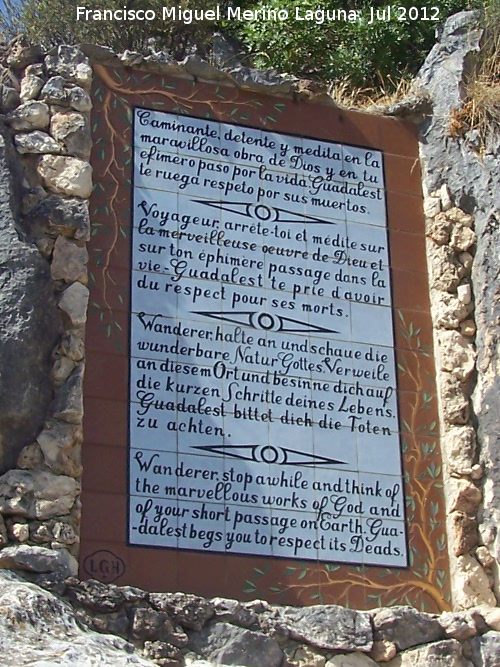 Francisco Miguel Merino Laguna. Jul 2012
Caminante, detente y medita en la
maravillosa obra de Dios y en tu
efimero paso por la vida. Guadalest
te ruega respeto por sus muertos.
Voyageur, arrête-toi et médite sur
la merveilleuse oeuvre de Dieu et
sur ton éphimère passage dans la
vie-Guadalest te prie d'avoir
du respect pour ses morts.
Wanderer, halte an und schaue die
wunderbare Natur Gottes. Verweile
an diesem Ort und besinne dich auf
die kurzen Schritte deines Lebens.
Guadalest bittet dich die Toten
zu achten.
Wanderer, stop awhile and think of
the marvellous works of God and
of your short passage on Earth. Gua-
-dalest begs you to respect its Deads.
LGH